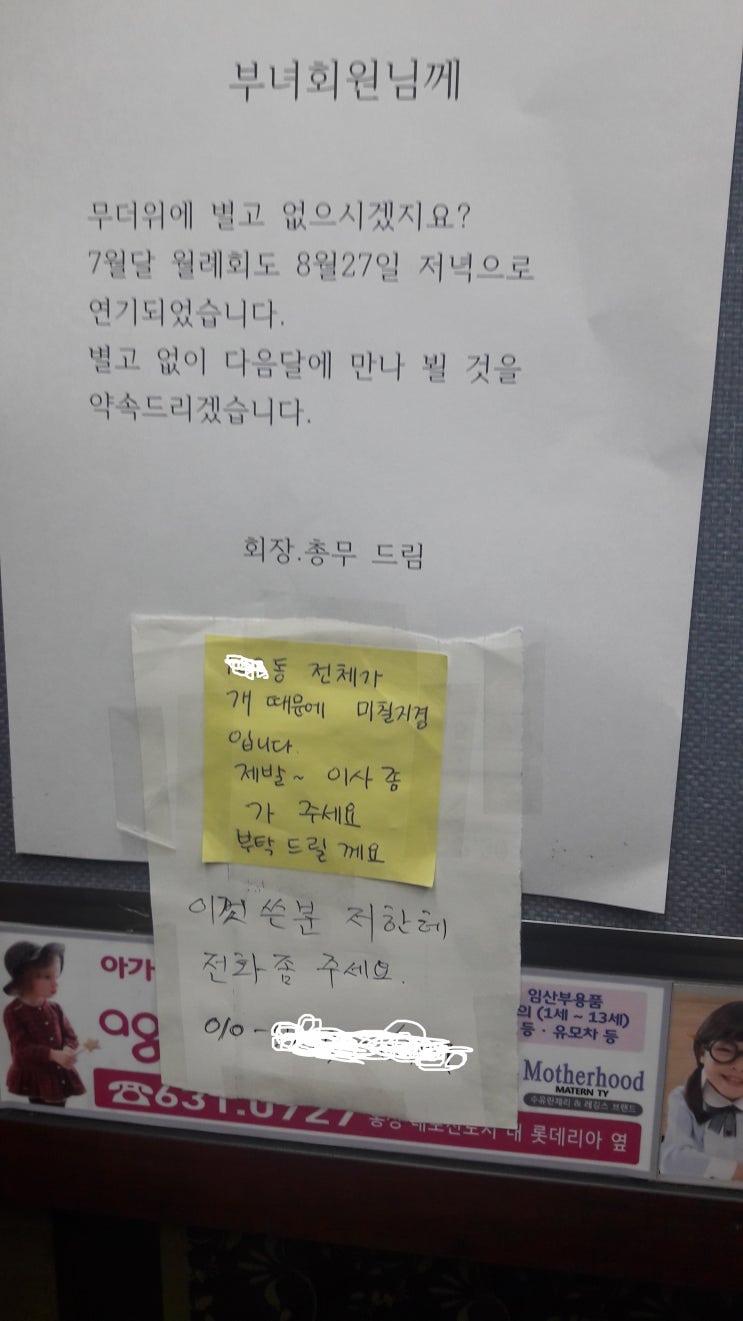 부녀회원님께
무더위에 별고 없으시겠지요?
7월달 월례회도 8월27일 저녁으로
연기되었습니다.
별고 없이 다음달에 만나 뵐 것을
약속드리겠습니다.
회장.총무 드림
동 전체가
개 때문에 미칠지경
입니다.
제발~ 이사 좀
가 주세요
부탁 드릴께요
이것 쓴분 저한테
전화좀 주세요.
010-
아가
ag
임산부용품
의 (1세 ~ 13세)
등·유모차 등
Motherhood
MATERN TY
수유란제리 & 레깅스 브랜드
☎631.0727
내 롯데리아 옆